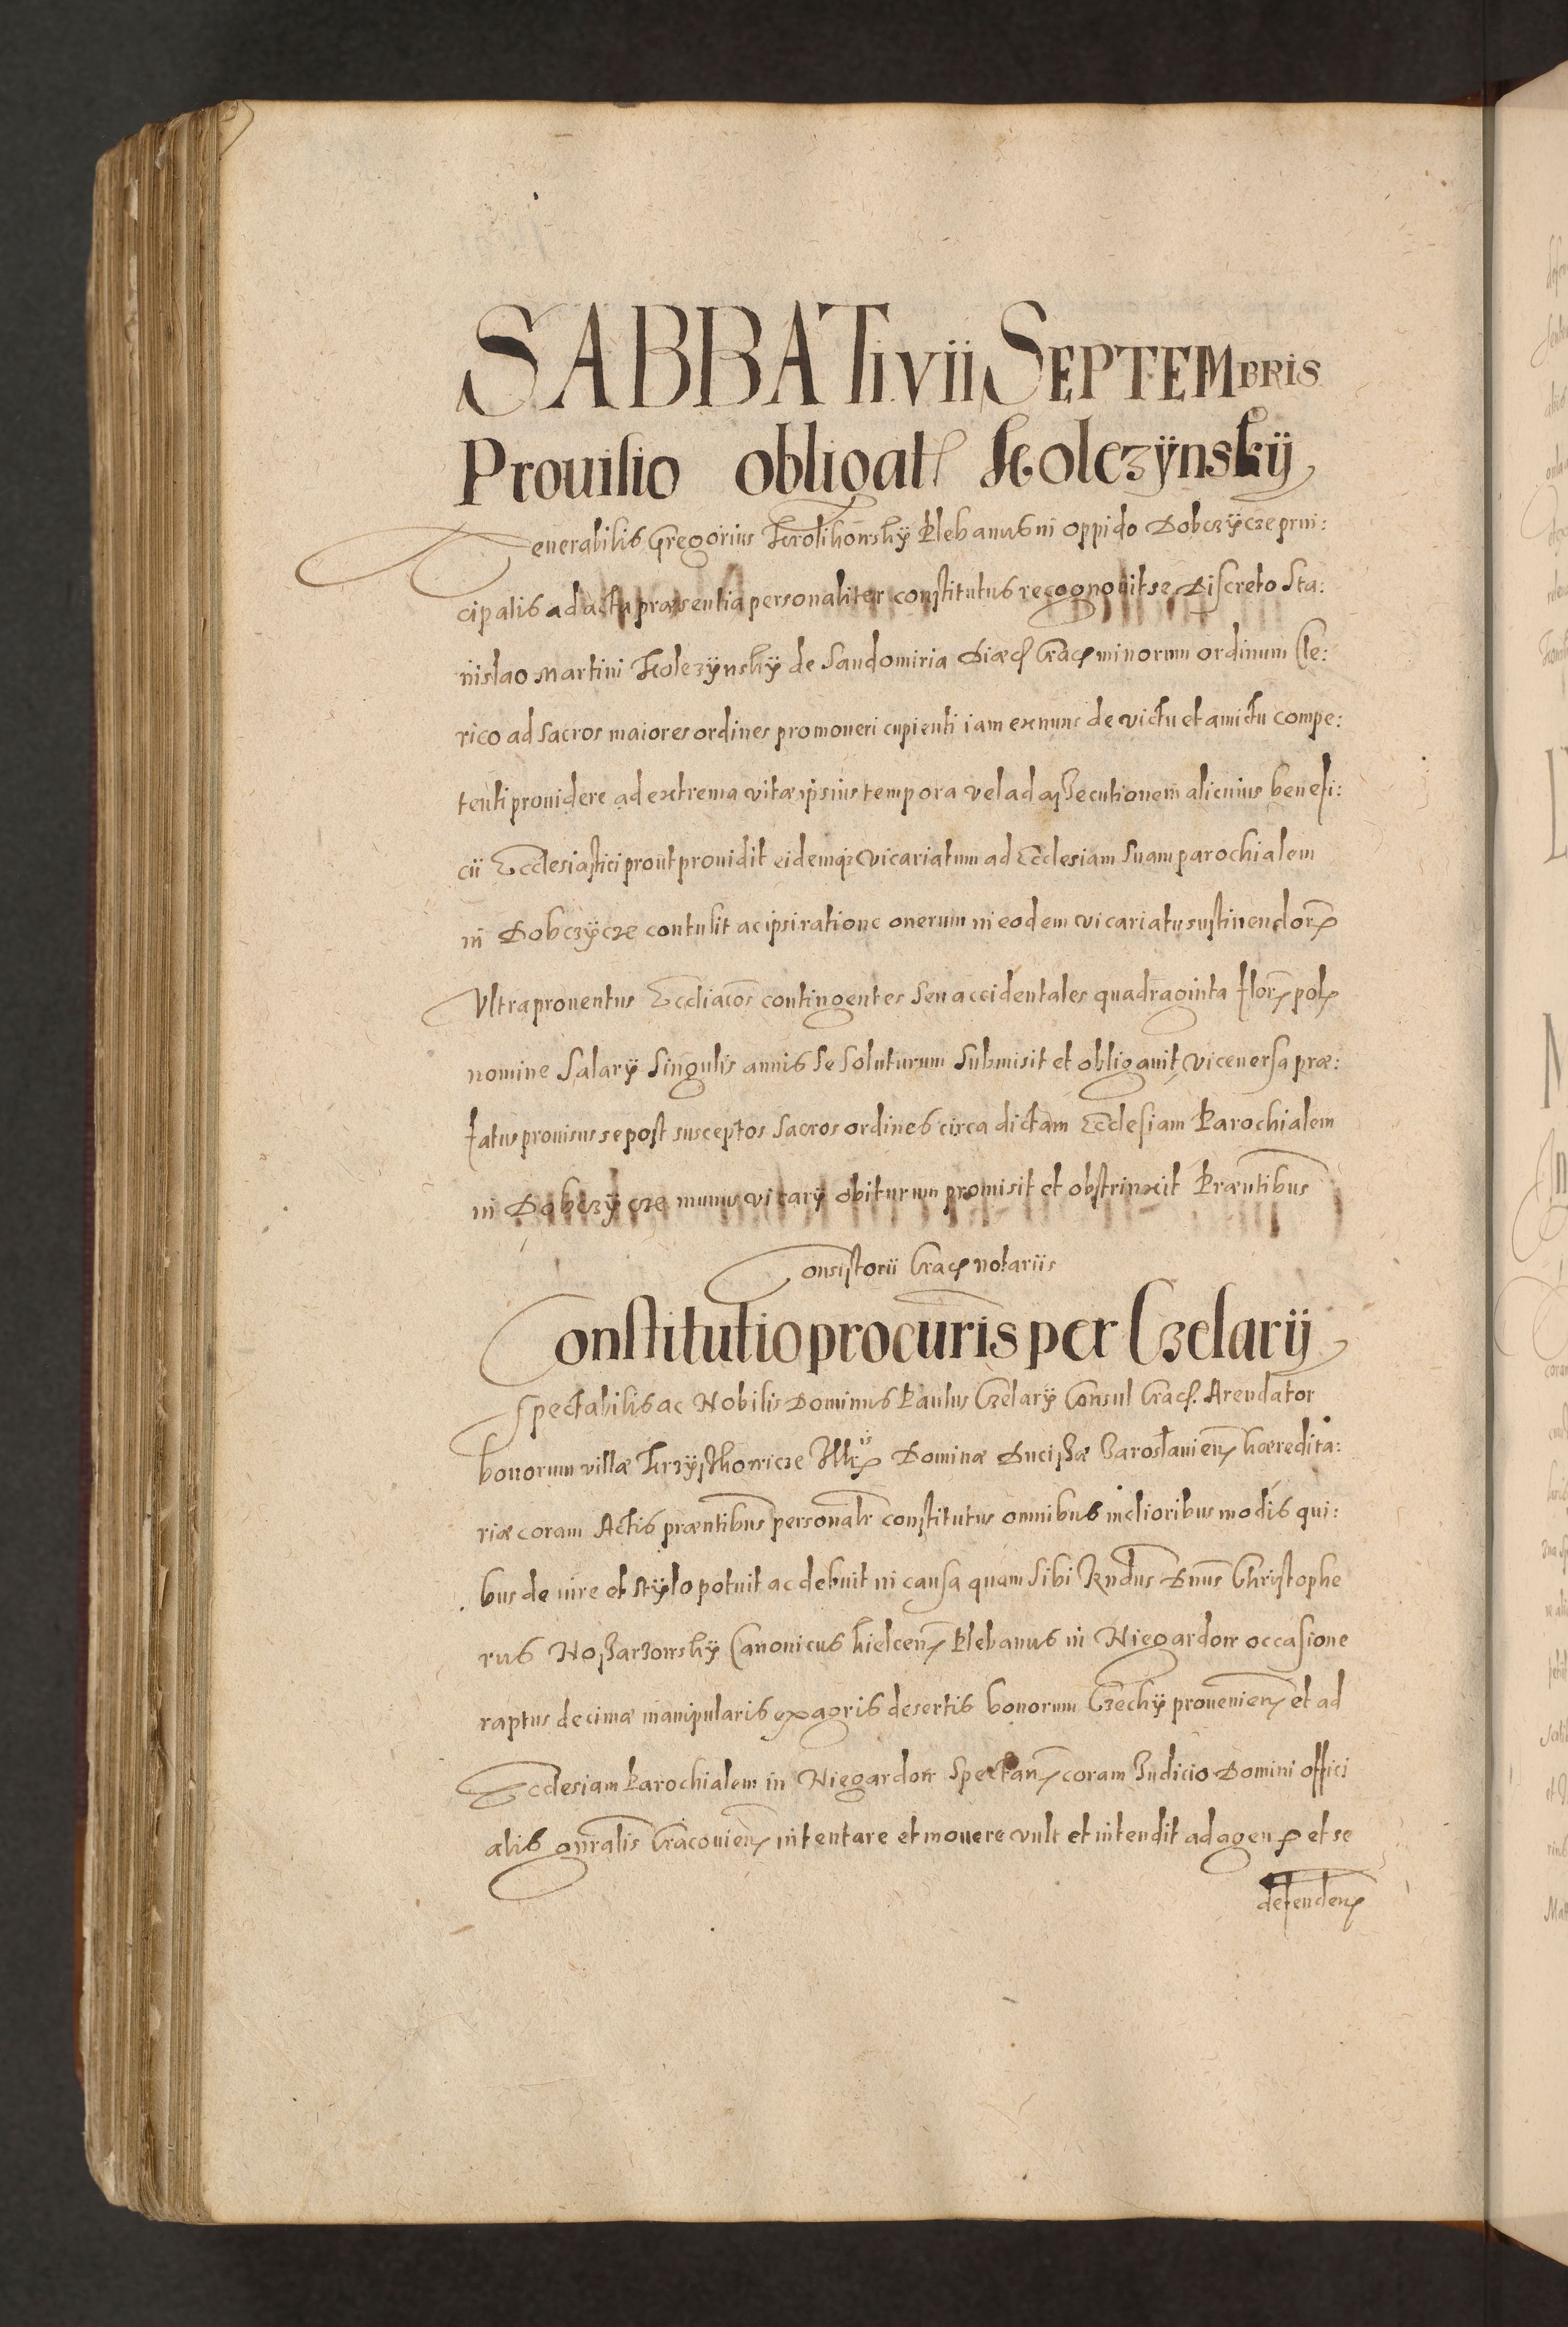 SABBATi vii SEPTEMBRIS
Prouisio obligat Kolczÿnskÿ
Venerabilis Gregorius Krolikowskÿ Plebanus in oppido Dobczÿcze prin:
cipalis ad acta præsentia personaliter constitutus recognouit se Discreto Sta:
nislao Martini Kolczÿnskÿ de Sandomiria Diæc Crac minorum ordinum Cle:
rico ad Sacros maiores ordines promoueri cupienti iam ex nunc de victu et amictu compe:
tenti prouidere ad extrema vitæ ipsius tempora vel ad assecutionem alicuius benefi:
cii Ecclesiastici prout prouidit eidemq vicariatum ad Ecclesiam suam parochialem
in Dobczÿcze contulit ac ipsi ratione onerum in eodem vicariatu sustinendor
Vltra prouentus Eccliacos contingentes seu accidentales quadraginta flor pol
nomine Salarÿ Singulis annis se soluturum Submisit et obligauit, vice uersa præ:
fatus prouisus se post susceptos Sacros ordines circa dictam Ecclesiam Parochialem
in Dobczÿcze munus vicarÿ obiturum promisit et obstrinxit Præntibus
Consistorii Crac notariis
Constitutio procuris per Czelarÿ
Spectabilis ac Nobilis Dominus Paulus Czelarÿ Consul Crac. Arendator
bonorum villæ Krzÿsthowicze Illris Dominæ Ducissæ Jaroslauien hæredita:
riæ coram Actis præntibus personalr constitutus omnibus melioribus modis qui:
bus de iure et stÿlo potuit ac debuit in causa quam sibi Rndus Dnus Christophe
rus Canonicus kielcen Plebanus in Niegardow occasione
raptus decimæ manipularis ex agris desertis bonorum Czechÿ prouenien et ad
Ecclesiam Parochialem in Niegardow Spectan coram Judicio Domini offici
alis gnralis Cracouien intentare et mouere vult et intendit ad agen et se
defenden